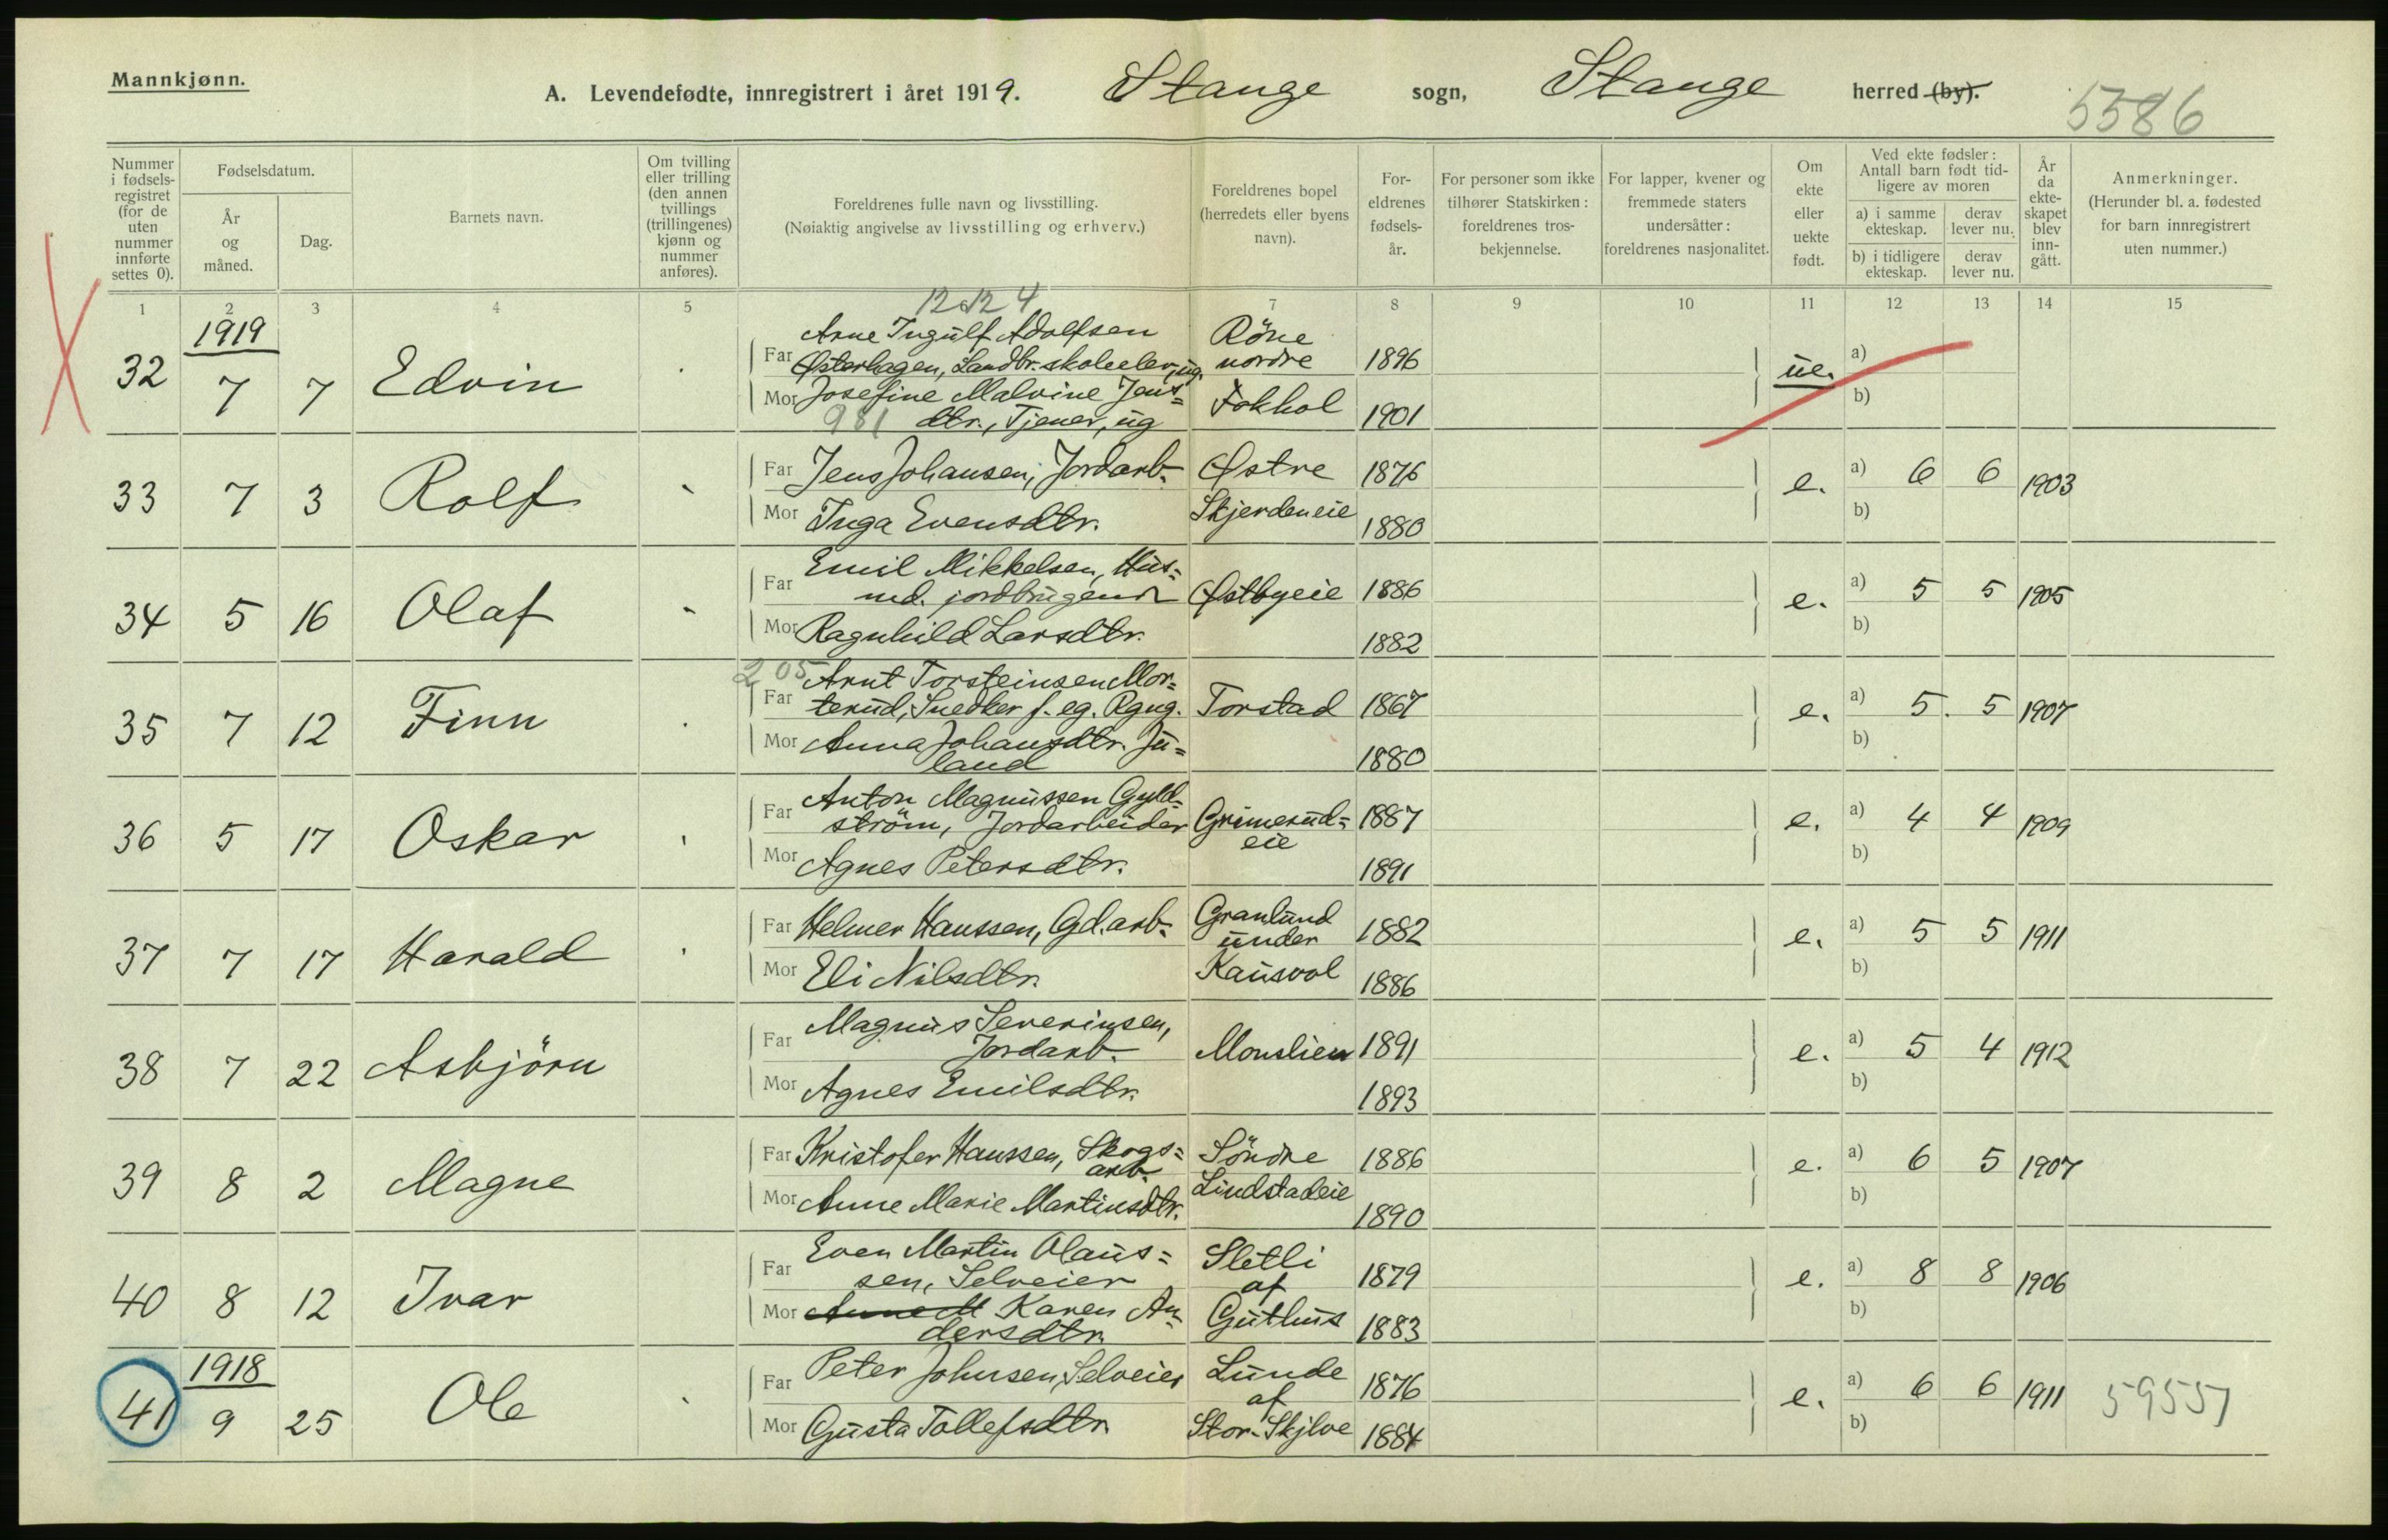 Mannkjønn.
A. Levendefødte, innregistrert i året 1919. Stange sogn, Stange herred (by).
5586
Nummer i fødsels-registret (for de uten nummer innførte settes 0).
Fødselsdatum.
År og måned.
Dag.
Barnets navn.
Om tvilling eller trilling (den annen tvillings (trillingenes) kjønn og nummer anføres).
Foreldrenes fulle navn og livsstilling.
(Nøiaktig angivelse av livsstilling og erhverv.)
Foreldrenes bopel (herredets eller byens navn).
For-eldrenes fødsels-år.
For personer som ikke tilhører Statskirken: foreldrenes tros-bekjennelse.
For lapper, kvener og fremmede staters undersåtter: foreldrenes nasjonalitet.
Om ekte eller uekte født.
Ved ekte fødsler: Antall barn født tid-ligere av moren
a) i samme ekteskap.
derav lever nu.
b) i tidligere ekteskap.
derav lever nu.
År da ekte-skapet blev inn-gått.
Anmerkninger.
(Herunder bl. a. fødested for barn innregistrert uten nummer.)
1 2 3 4 5 7 8 9 10 11 12 13 14 15
1919
Arne Ingulf Adolfsen Röne
Far Østerhagen, Landbr.skoleelev, ug. nordre 1896
32 7 7 Edvin ue. a)
Mor Josefine Malvine Jens= Fokhol 1901 b)
981 dtr., Tjener, ug
Far Jens Johansen, Jordarb. Østre 1876 a) 6 6
33 7 3 Rolf e. 1903
Mor Inga Evensdtr. Skjerdeneie 1880 b)
Emil Mikkelsen, Hus=
Far md. jordbrugende Østbyeie 1886 a) 5 5
34 5 16 Olaf e. 1905
Mor Ragnhild Larsdtr. 1882 b)
205 Arnt Torsteinsen Mor=
Far terud, Snedker f. eg. Rgng. Torstad 1867 a) 5. 5
35 7 12 Finn e. 1907
Mor Anna Johansdtr. Ju= b)
land 1880
Anton Magnussen Gyld=
Far ström, Jordarbeider Grimerud= 1887 a) 4 4
36 5 17 Oskar eie e. 1909
Mor Agnes Petersdtr. 1891 b)
Far Helmer Hanssen, Gd.arb. Granlund 1882 a) 5 5
37 7 17 Harald under e. 1911
Mor Eli Nilsdtr. Kausvol 1886 b)
Magnus Severinsen,
Far Jordarb. Monslien 1891 a) 5 4
38 7 22 Asbjörn e. 1912
Mor Agnes Emilsdtr. 1893 b)
Far Kristofer Hanssen, Skogs= Söndre 1886 a) 6 5
39 8 2 Magne arb. e. 1907
Mor Anne Marie Martinsdtr. Lindstadeie 1890 b)
Even Martin Olaus= Sletli
Far sen, Selveier af 1879 a) 8 8
40 8 12 Ivar e. 1906
Mor Anne M Karen An= Guthus 1883 b)
dersdtr.
1918
Far Peter Johnsen, Selveier Lunde 1876 a) 6 6
41 9 25 Ole af e. 1911 59557
Mor Gusta Tollefsdtr. Stor-Skjlve 1884 b)